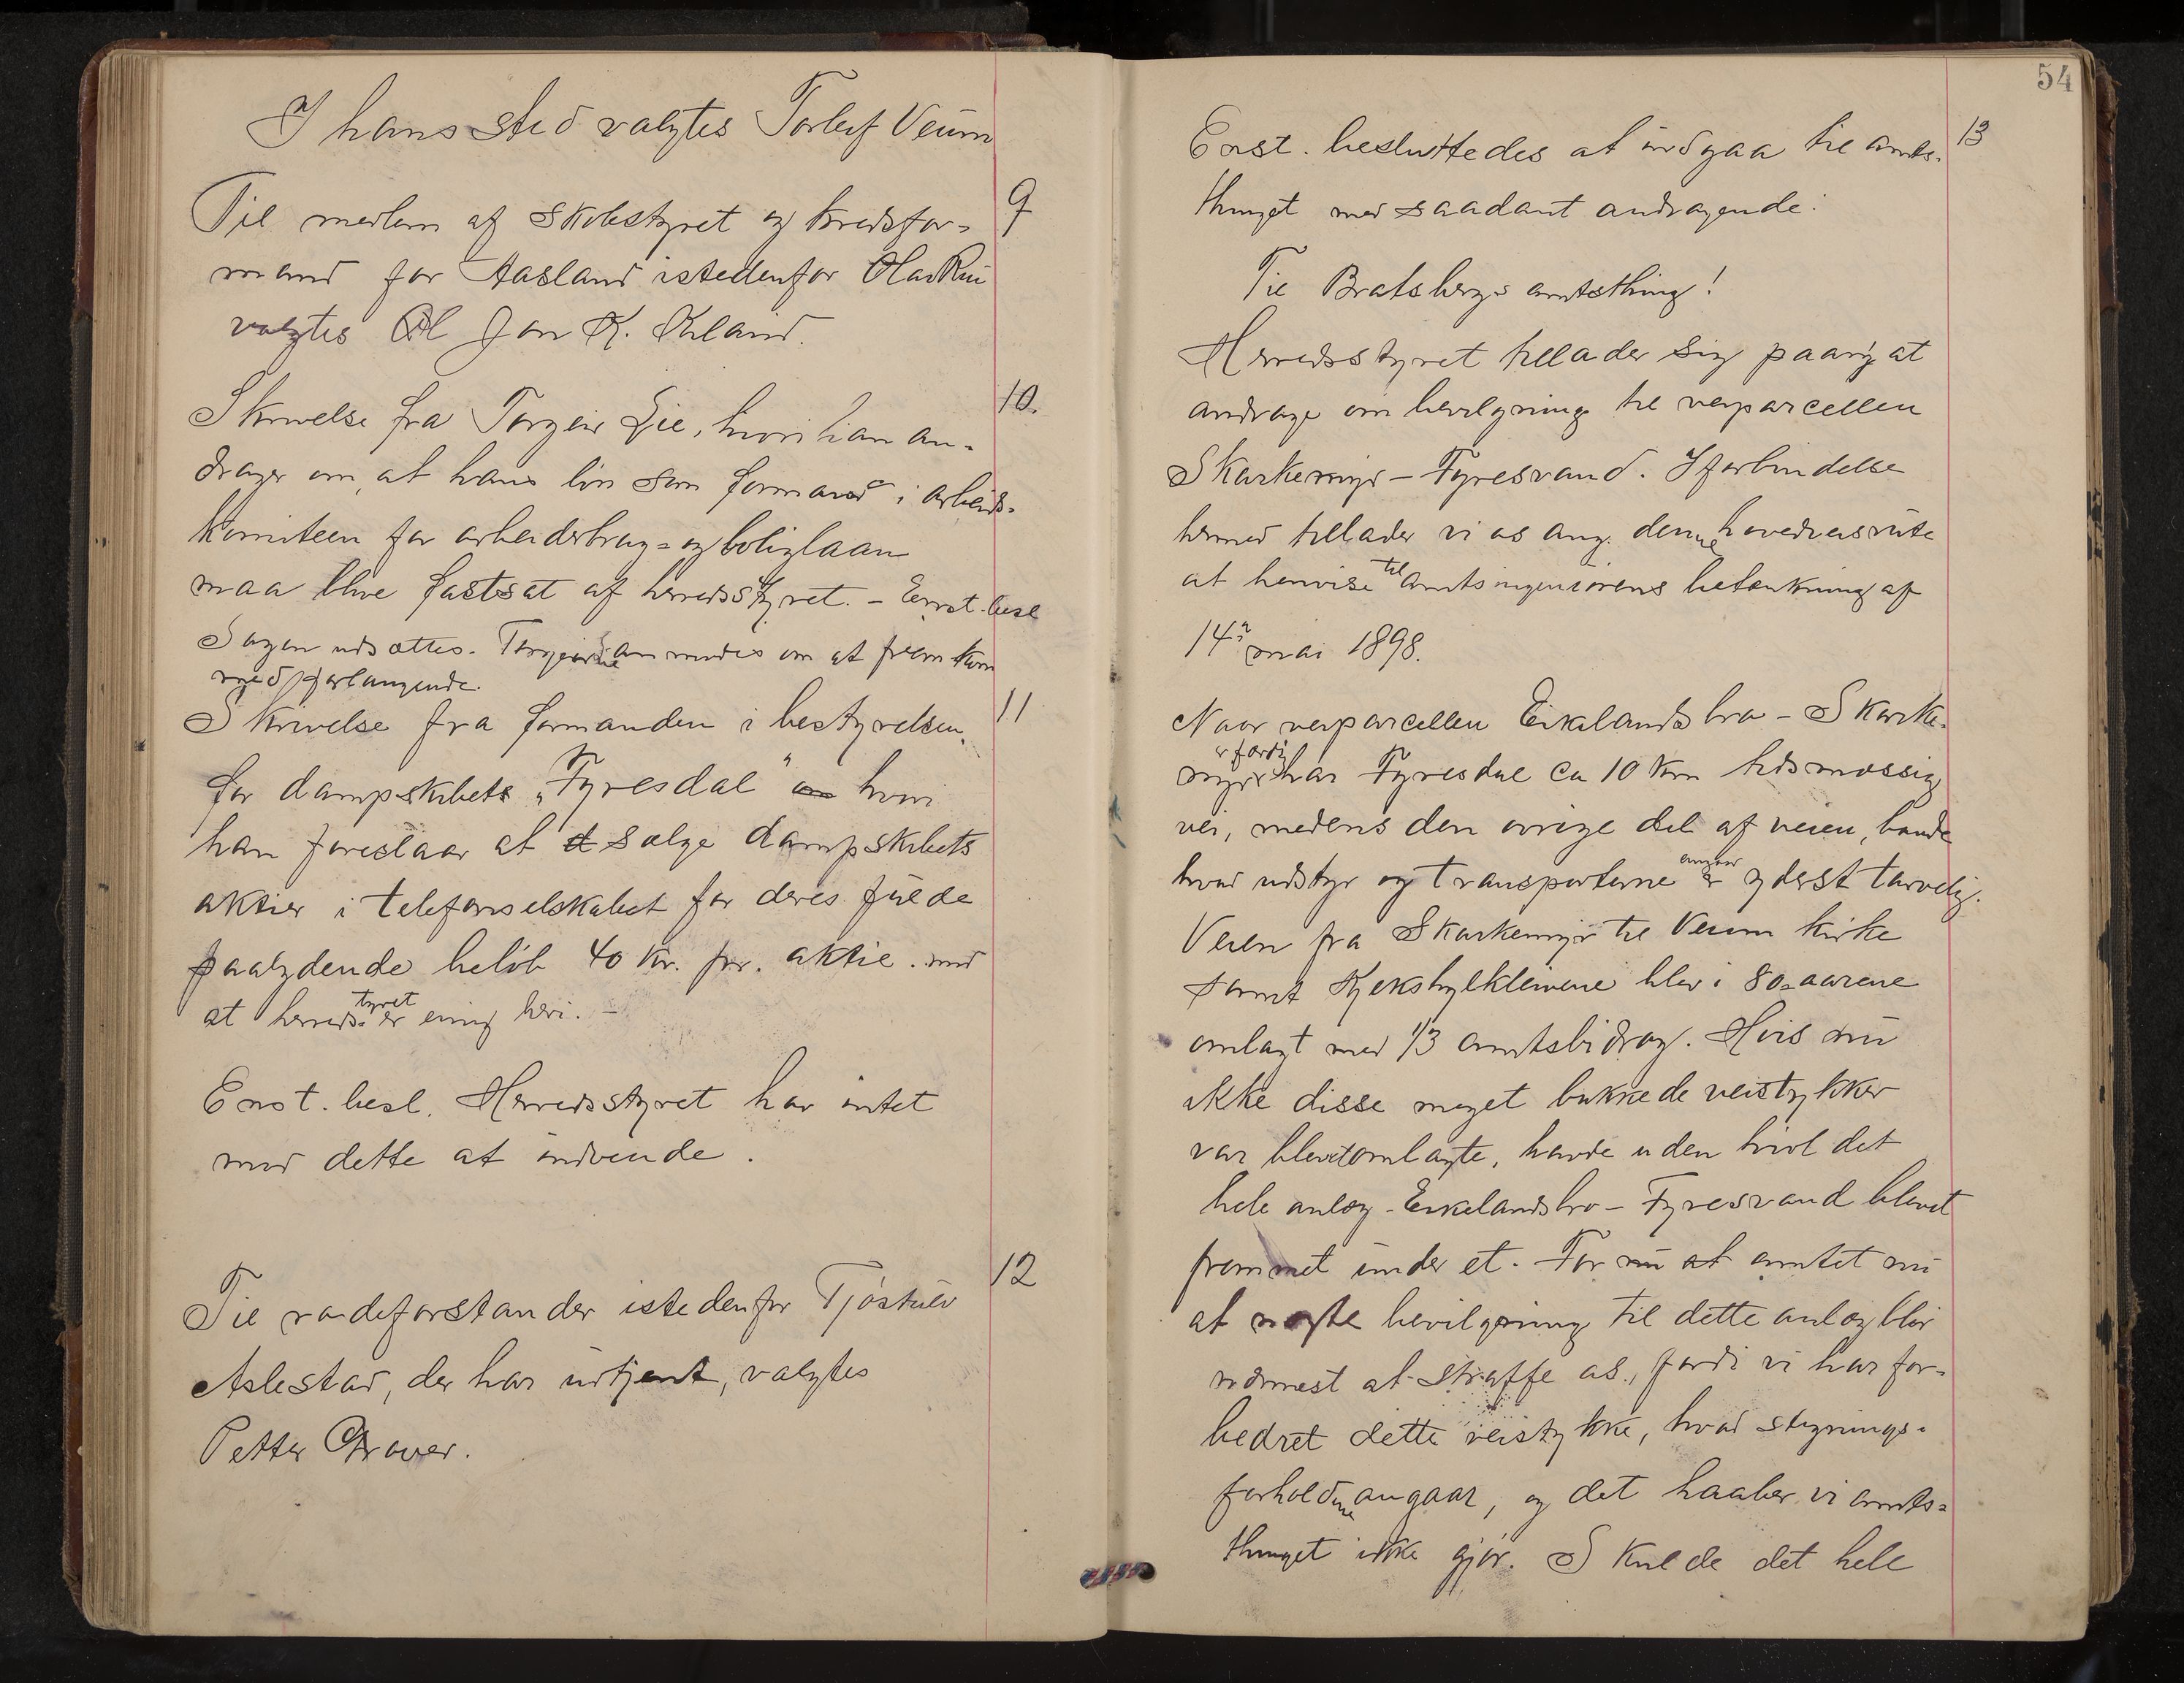 I hans sted valgtes Torleif Veum
9
Til medlem af skolestyret og kredsfor-
mand for Aasland istedenfor Olav Rui
valgtes Jon K. Ökland.
10.
Skrivelse fra Torgeir Lie, hvori han an-
drager om, at hans lön som formand i arbeids-
komiteen for arbeiderbrug- og boliglaan
maa blive fastsat af herredsstyret. - Enst. besl
Sagen udsættes. Torgeir Lie anmodes om at fremkom
med forlangende.
11
Skrivelse fra formanden i bestyrelsen
for dampskibets „Tyresdal" hvori
han foreslaar at sælge dampskibets
aktier i telefonselskabet for deres fulde
paalydende belöb 40 kr. pr. aktie. med
at herredsstyret er enig heri. -
Enst. besl. Herredsstyret har intet
mod dette at indvende.
12
Til rodeforstander istedenfor Tjöstulv
Aslestad, der har udtjent, valgtes
Petter Grover.
54
13
Enst. besluttedes at indgaa til amts-
thinget med saadant andragende:
Til Bratsbergs amtsthing!
Herredsstyret tillader sig paany at
andrage om bevilgning til veiparcellen
Skarkemyr - Tyresvand. I forbindelse
hermed tillader vi os ang. denne hovedveisrute
at henvise til amtsingeniörens betænkning af
14de mai 1898.
Naar veiparcellen Eikelandsbro - Skarke-
myr er færdig har Tyresdal ca 10 km tidsmæssig
vei, medens den övrige del af veien, baade
hvad udstyr og transporterne angaar er yderst tarvelig.
Veien fra Skarkemyr til Veum kirke
samt Kjekshylkleivene blev i 80-aarene
omlagt med 1/3 amtsbidrag. Hvis nu
ikke disse meget bakkede veistykker
var blevet omlagte, havde uden tvivl det
hele anlæg - Eikelandsbro - Tyresvand blevet
fremmet under et. For nu at amtet nu
at nægte bevilgning til dette anlæg blir
nærmest at straffe os, fordi vi har for-
bedret dette veistykke, hvad stignings-
forholdene angaar, og det haaber vi amts-
thinget ikke gjör. Skulde det hele